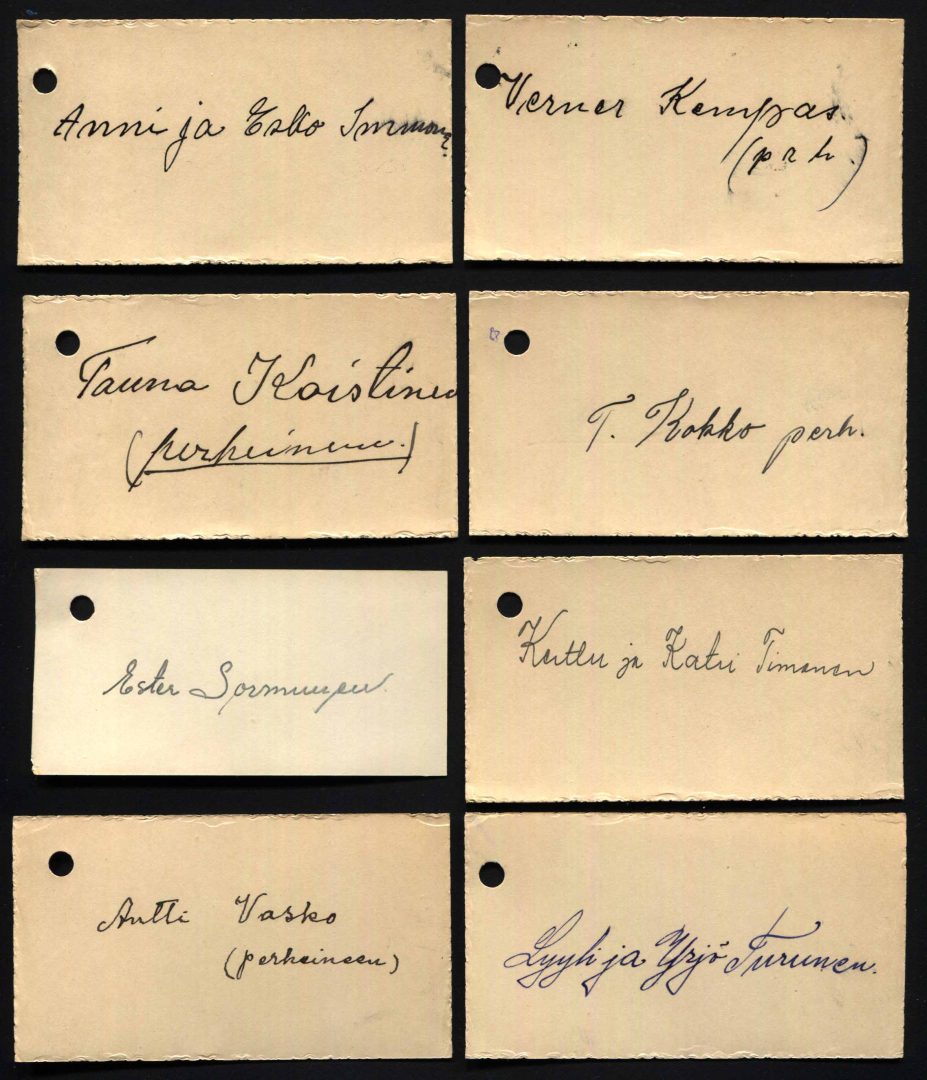 Anni ja Esko Immonen
Verner Kempas.
(prh.)
Tauno Koistinen
(perheineen.)
T. Kokko perh.
Ester Sormunen.
Kerttu ja Katri Timonen
Antti Vasko
(perheineen)
Lyyli ja Yrjö Turunen.